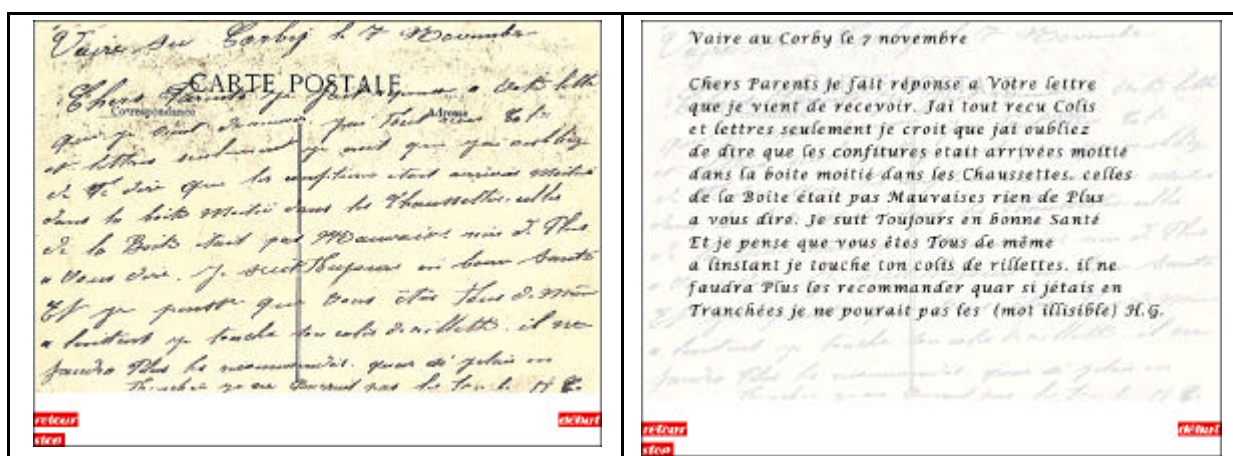 Vaire au Corby le 7 Novembre
CARTE POSTALE
Correspondance
Adresse
Chers Parents je fait réponse a Votre lettre
que je vient de recevoir. jai tout recu Colis
et lettres seulement je croit que jai oubliez
de dire que les confitures etait arrivées moitié
dans la boite moitié dans les Chaussettes. celles
de la Boite était pas Mauvaises rien de Plus
a Vous dire. Je suit Toujours en bonne Santé
Et je pense que Vous êtes Tous de même
a linstant je touche ton colis de rillettes. il ne
faudra Plus les recommander. quar si jétais en
Tranchées je ne pourait pas les
retour
début
stop
Vaire au Corby le 7 novembre
Chers Parents je fait réponse a Votre lettre
que je vient de recevoir. Jai tout recu Colis
et lettres seulement je croit que jai oubliez
de dire que les confitures etait arrivées moitié
dans la boite moitié dans les Chaussettes. celles
de la Boite était pas Mauvaises rien de Plus
a vous dire. Je suit Toujours en bonne Santé
Et je pense que vous êtes Tous de même
a linstant je touche ton colis de rillettes. il ne
faudra Plus les recommander quar si jétais en
Tranchées je ne pourait pas les (mot illisible) H.G.
retour
début
stop